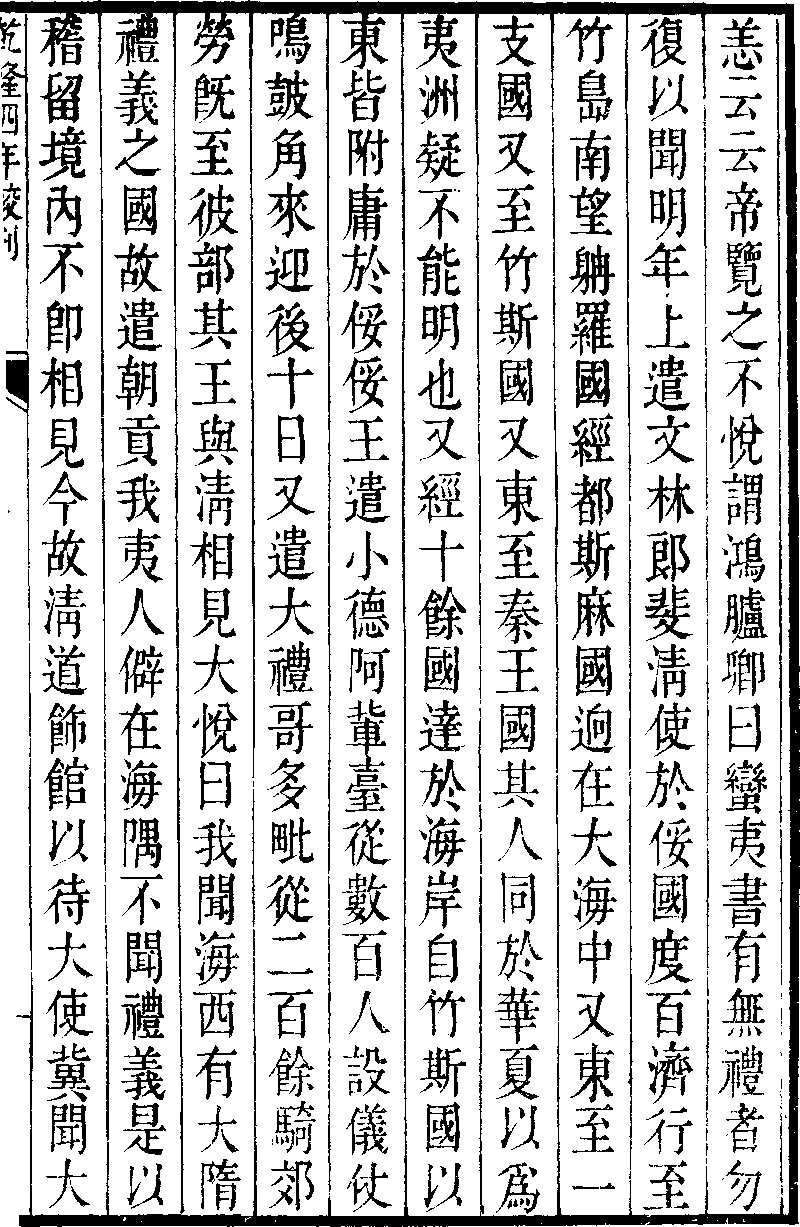 恙云云帝覽之不悅謂鴻臚卿曰蠻夷書有無禮者勿
復以聞明年上遣文林郎斐淸使於俀國度百濟行至
竹島南望𨈭羅國經都斯麻國逈在大海中又東至一
支國又至竹斯國又東至秦王國其人同於華夏以爲
夷洲疑不能明也又經十餘國達於海岸自竹斯國以
東皆附庸於俀俀王遣小德阿輩臺從數百人設儀仗
鳴鼓角來迎後十日又遣大禮哥多毗從二百餘騎郊
勞旣至彼部其王與淸相見大悅曰我聞海西有大隋
禮義之國故遣朝貢我夷人僻在海隅不聞禮義是以
稽留境內不卽相見今故淸道飾館以待大使冀聞大
乾隆四年校刋